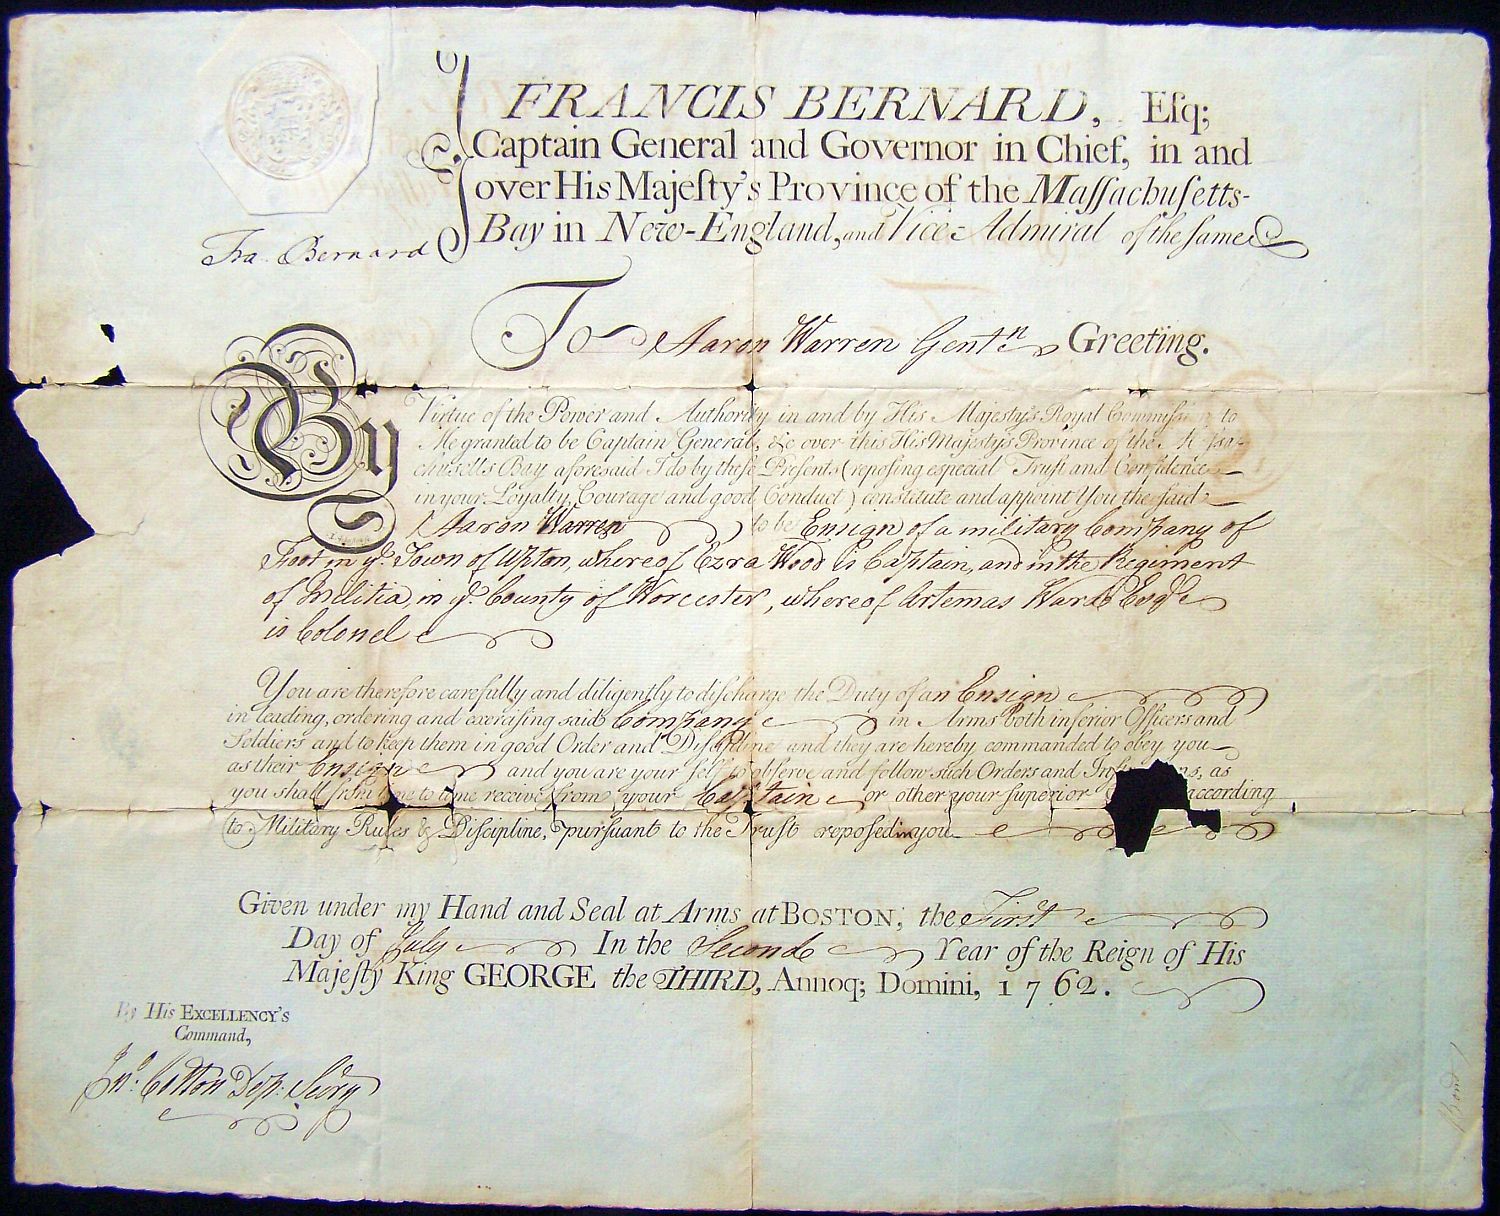 FRANCIS BERNARD, Eſq;
Captain General and Governor in Chief, in and
over His Majeſty's Province of the Maſſachuſetts-
Bay in New-England, and Vice-Admiral of the ſame
Fra. Bernard
To Aaron Warren Gentn Greeting.
By Virtue of the Power and Authority in and by His Majesty's Royal Commission to
Me granted to be Captain General, &c over this His Majesty's Province of the Maſsa-
chusetts Bay aforesaid I do by theſe Preſents (repoſing eſpecial Truſt and Confidence
in your Loyalty, Courage and good Conduct) conſtitute and appoint You the ſaid
Aaron Warren to be Ensign of a military Company of
Foot in ye Town of Upton, whereof Ezra Wood is Captain, and in the Regiment
of Militia, in ye County of Worcester, whereof Artemas Ward Esqr
is Colonel
You are therefore carefully and diligently to diſcharge the Duty of an Ensign
in leading, ordering and exerciſing said Company in Arms both inferior Officers and
Soldiers and to keep them in good Order and Diſcipline and they are hereby commanded to obey you
as their Ensign and you are your ſelf to obſerve and follow such Orders and as
you shall from time to time receive from your Captain or other your ſuperior according
to Military Rules & Diſcipline, purſuant to the Truſt repoſed in you
Given under my Hand and Seal at Arms at BOSTON, the First
Day of July In the Second Year of the Reign of His
Majeſty King GEORGE the THIRD, Annoq; Domini, 1762.
By His EXCELLENCY'S
Command,
Jno. Cotton Dep. Secry